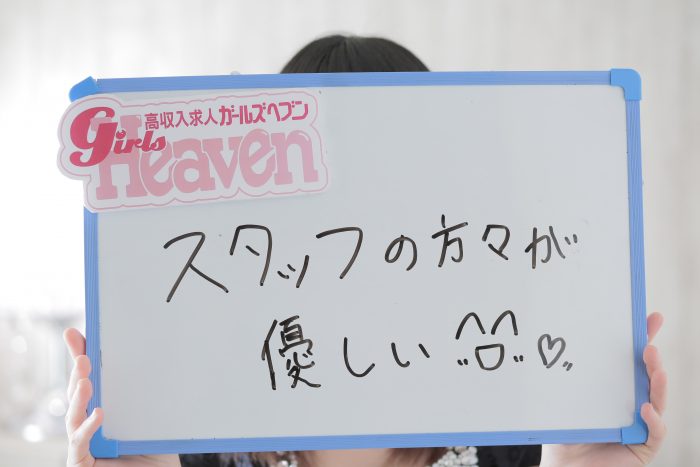 高収入求人ガールズヘブン
Girls
Heaven
スタッフの方々が
優しい ^^♡